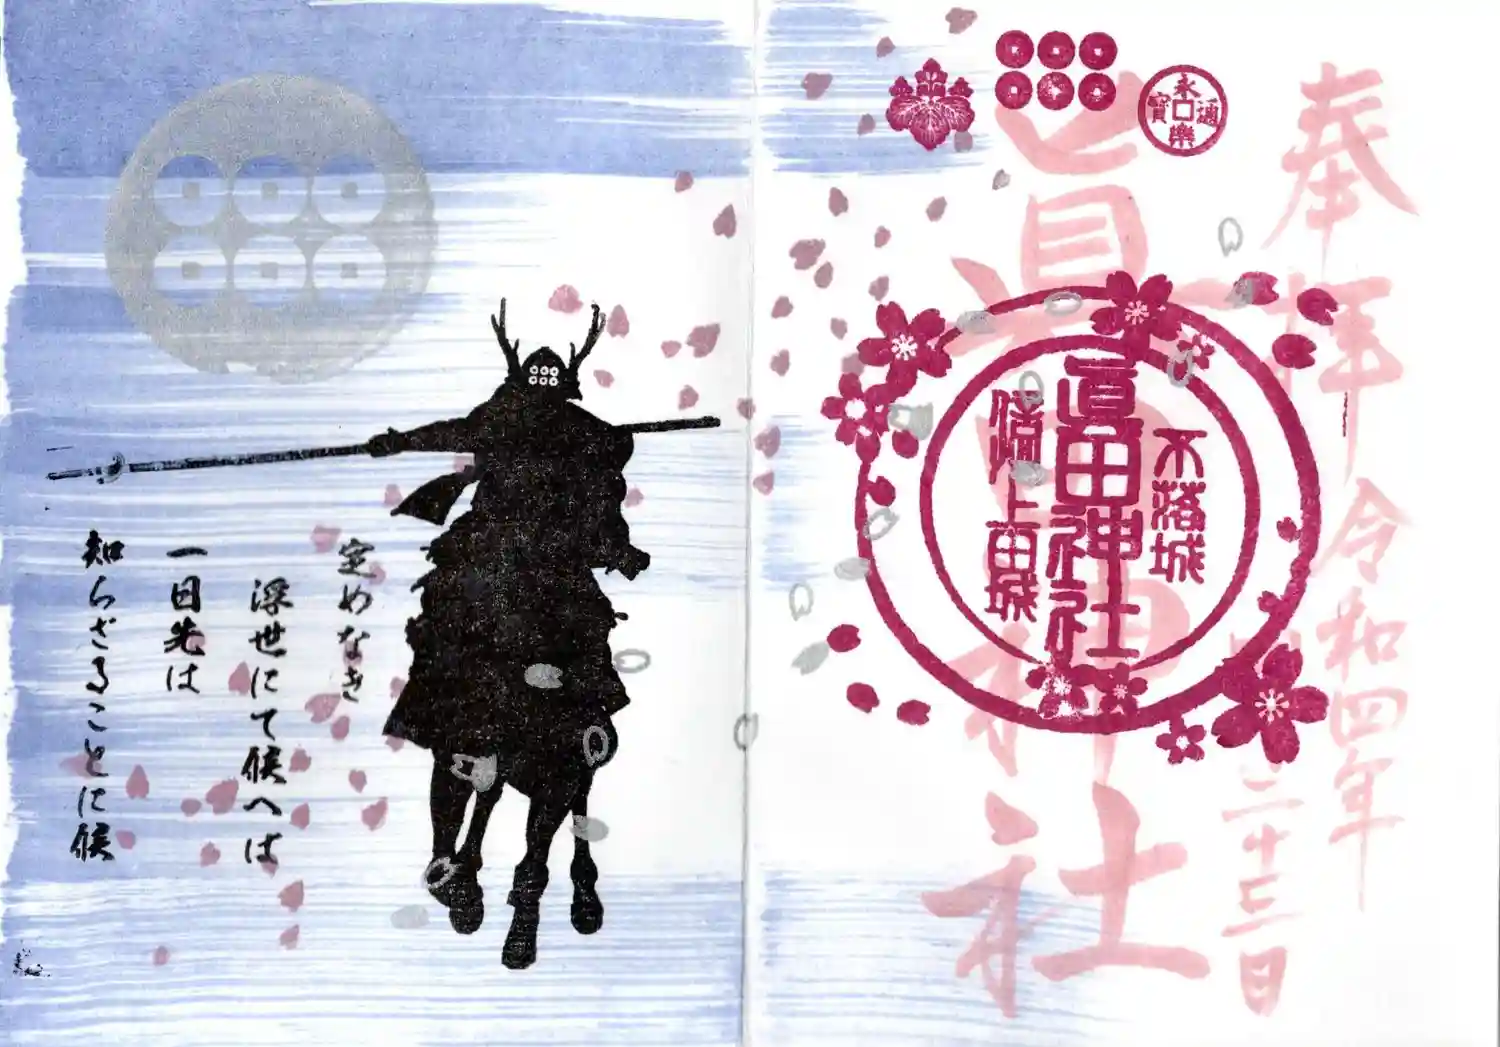 奉拝
令和四年
四月二十三日
眞田神社
永樂通寳
不落城
眞田神社
信州上田城
定めなき
浮世にて候へは
一日先は
知らざることに候